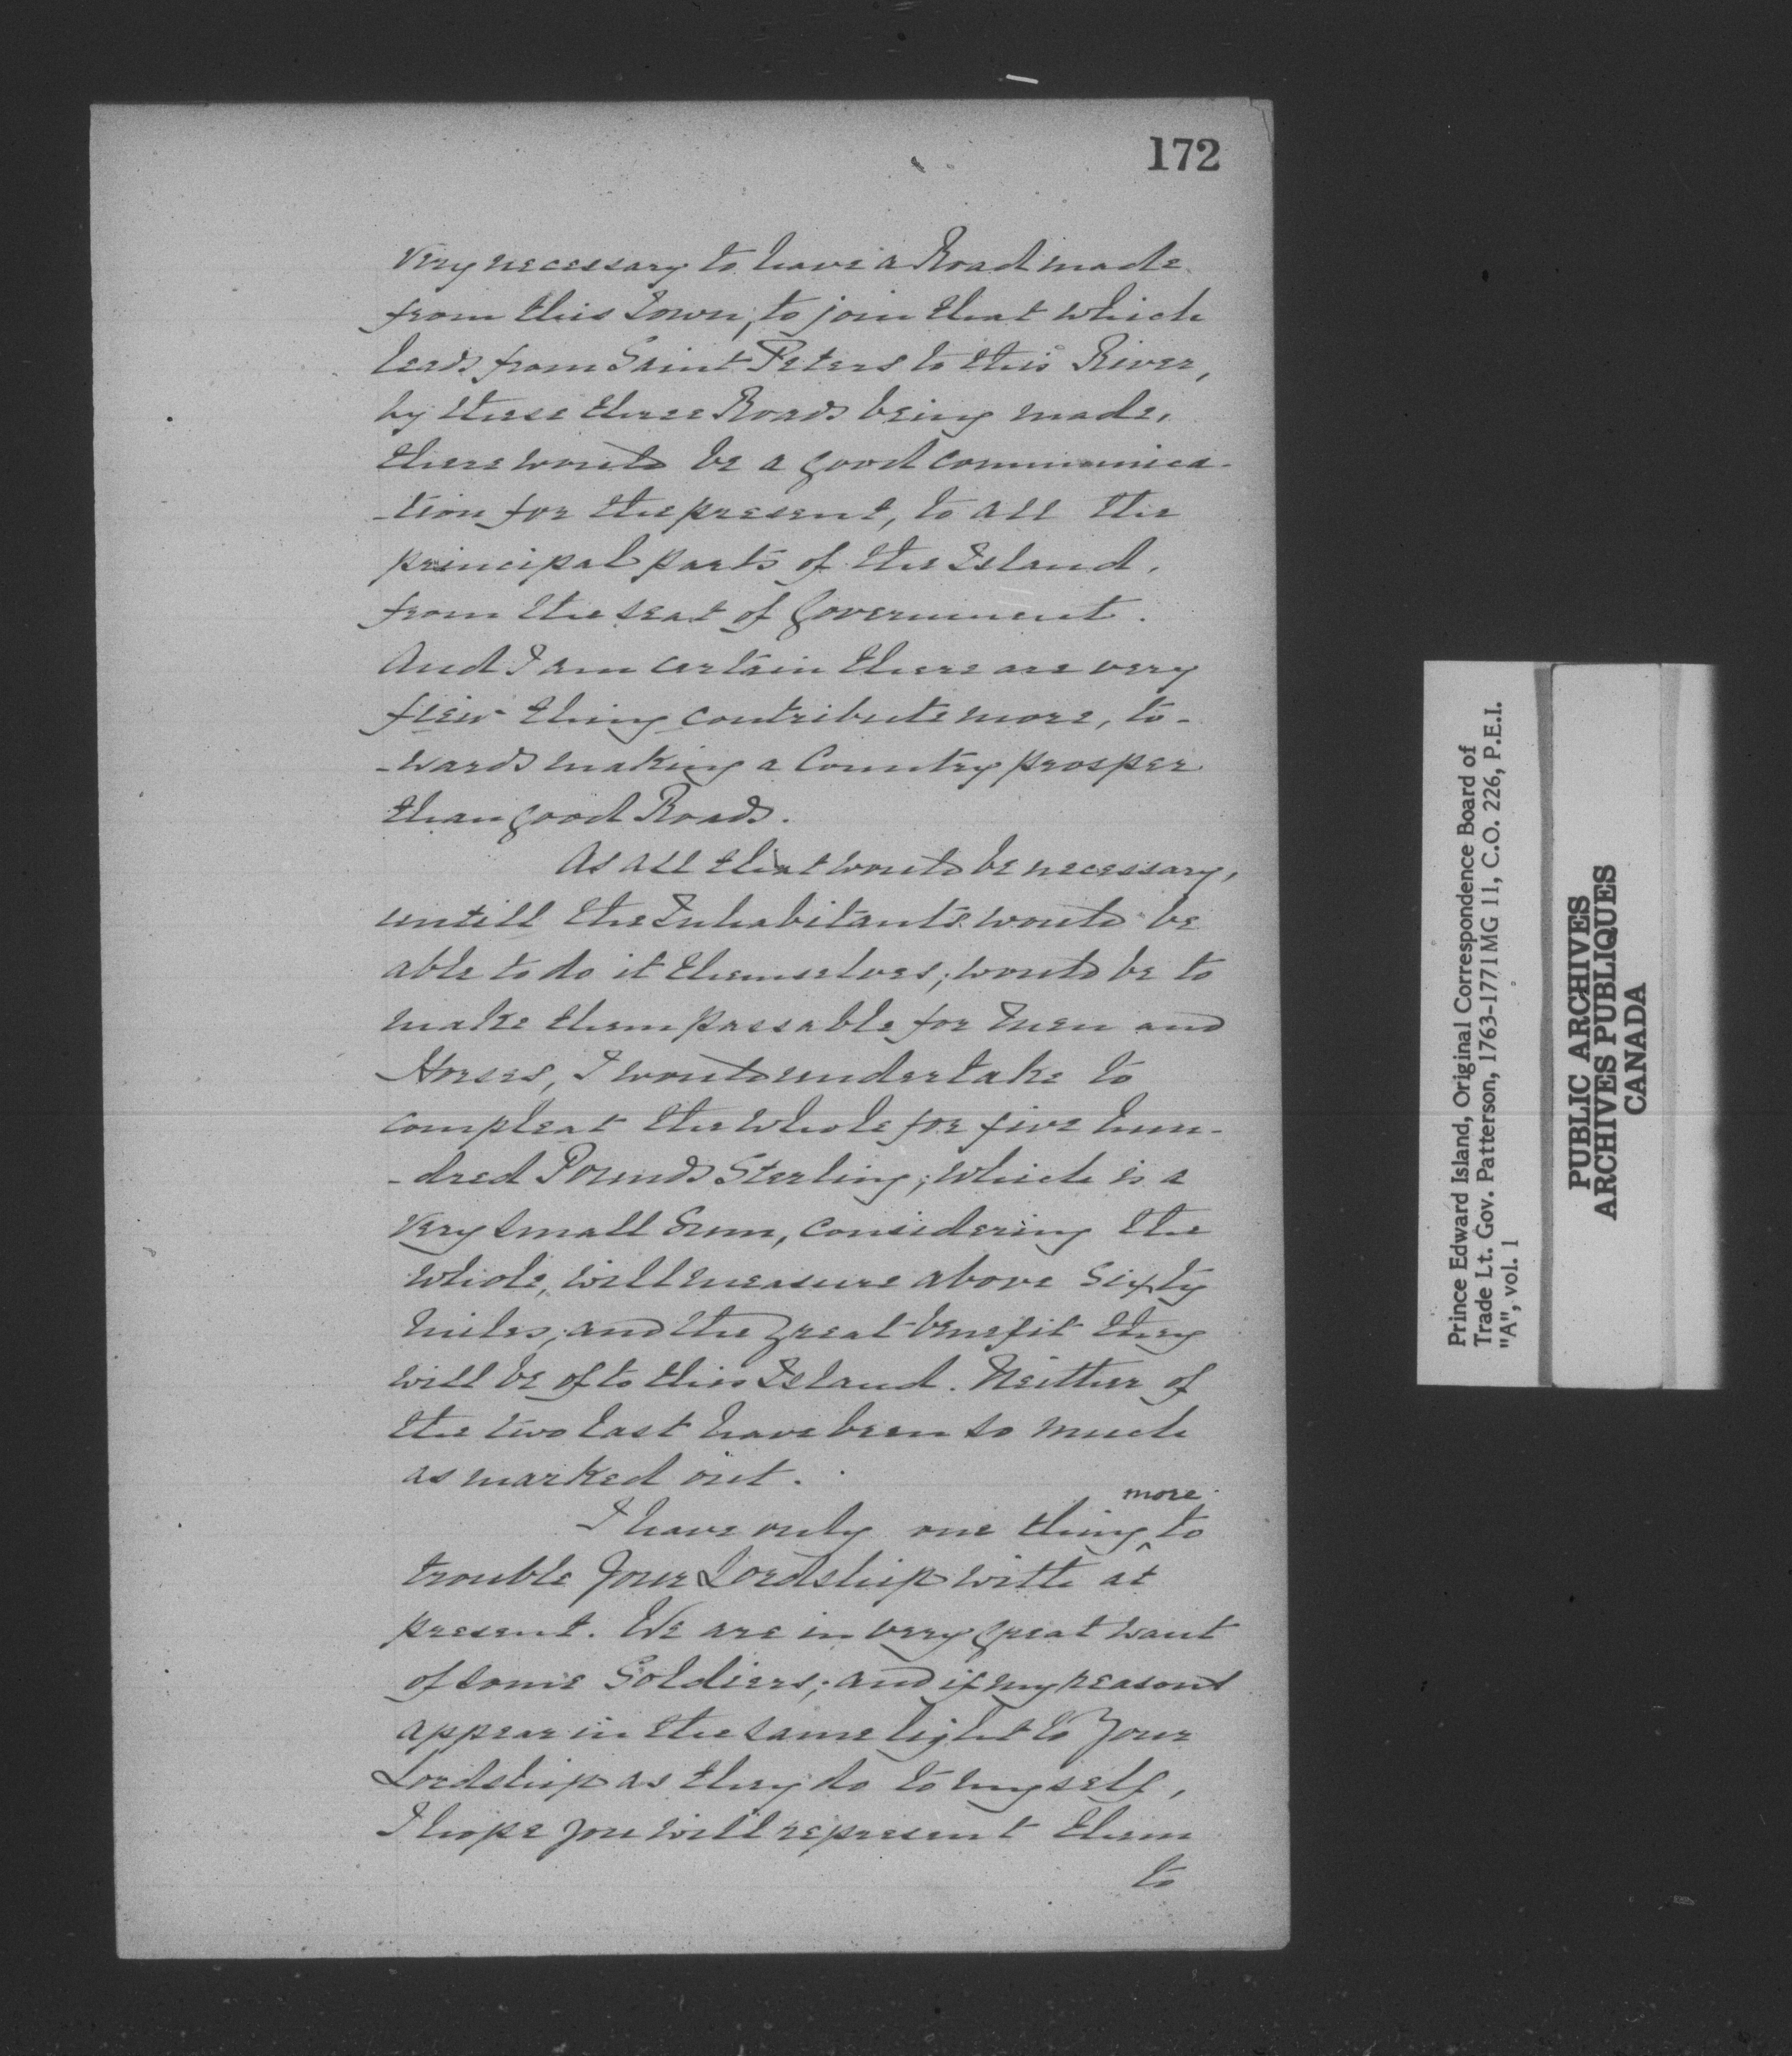 172
very necessary to have a Road made
from this Town, to join that which
leads from Saint Peters to this River,
by these three Roads being made,
there would be a good communica-
-tion for the present, to all the
principal parts of the Island,
from the seat of Government.
And I am certain there are very
few thing contribute more, to-
-wards making a Country prosper
than good Roads.
As all that would be necessary,
untill the Inhabitants would be
able to do it themselves; would be to
make them passable for Men and
Horses, I would undertake to
compleat the whole for five hun-
-dred Pounds Sterling; which is a
very small Sum, considering the
whole, will measure above Sixty
Miles; and the great benefit they
will be of to this Island. Neither of
the two last have been so much
as marked out.
more
I have only one thing ^ to
trouble Your Lordship with at
present. We are in very great want
of some Soldiers; and if my reasons
appear in the same light to Your
Lordship as they do to myself,
I hope you will represent them
to
Prince Edward Island, Original Correspondence Board of
Trade Lt. Gov. Patterson, 1763-1771 MG 11, C.O. 226, P.E.I.
"A", vol. 1
PUBLIC ARCHIVES
ARCHIVES PUBLIQUES
CANADA